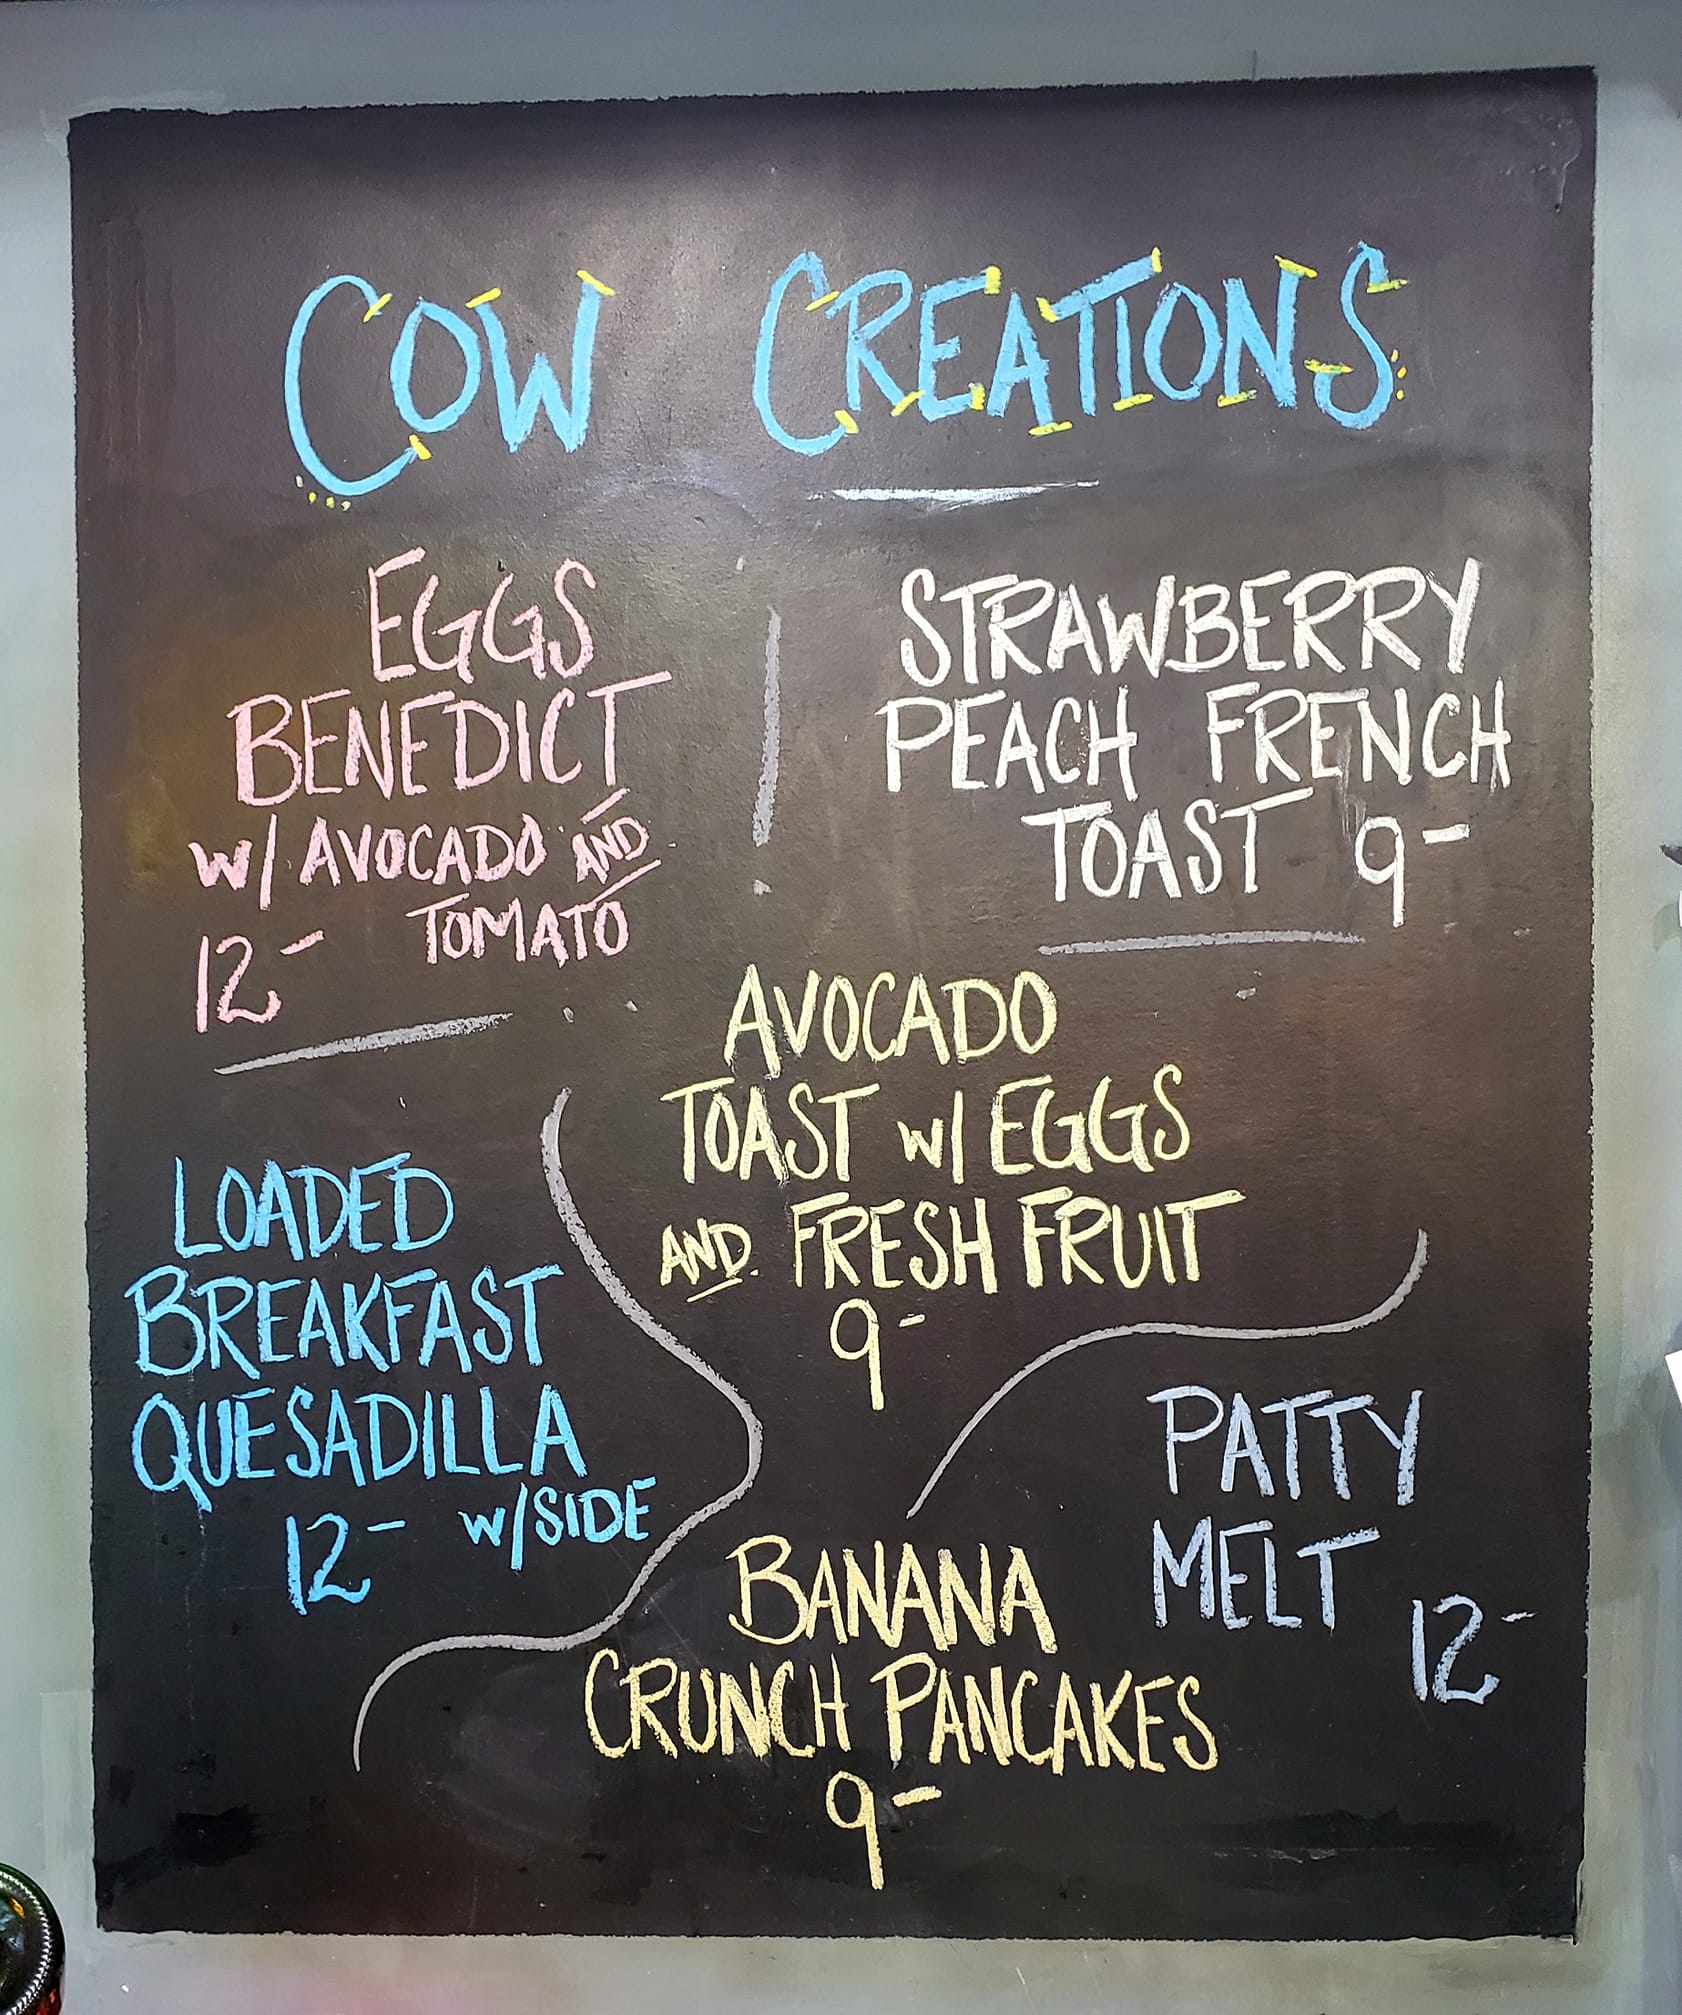 COW CREATIONS
EGGS
BENEDICT
W/ AVOCADO AND
TOMATO
12-
STRAWBERRY
PEACH FRENCH
TOAST 9-
AVOCADO
TOAST W/ EGGS
AND FRESH FRUIT
9-
LOADED
BREAKFAST
QUESADILLA
12- W/SIDE
PATTY
MELT
12-
BANANA
CRUNCH PANCAKES
9-